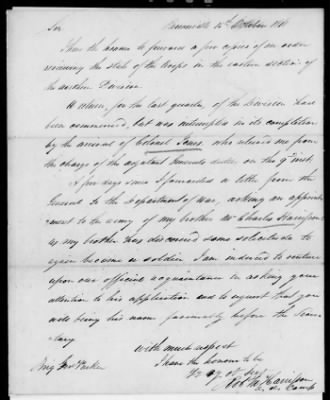 Sir
October
I have the honor to
a few copies of an order
the state of the troops in the eastern section of
the northern Division.
A return, for the last quarter, of the Division had
been commenced, but was interrupted in its completion
by the arrival of Colonel Jones, who relieved me from
the charge of the adjutant Generals duties on the 9th inst.
A few days since I forwarded a letter from the
General to the Department of War, asking an appoint-
ment to the army of my brother Mr Charles Harrison
as my brother has discovered some solicitude to
again become a soldier I am induced to venture
upon our official acquaintance in asking your
attention to his application and to request that you
will bring his name favorably before the Secre-
tary
With much respect
I have the honour to be
Yr
Brig Gen Parker
Harrison
Camp